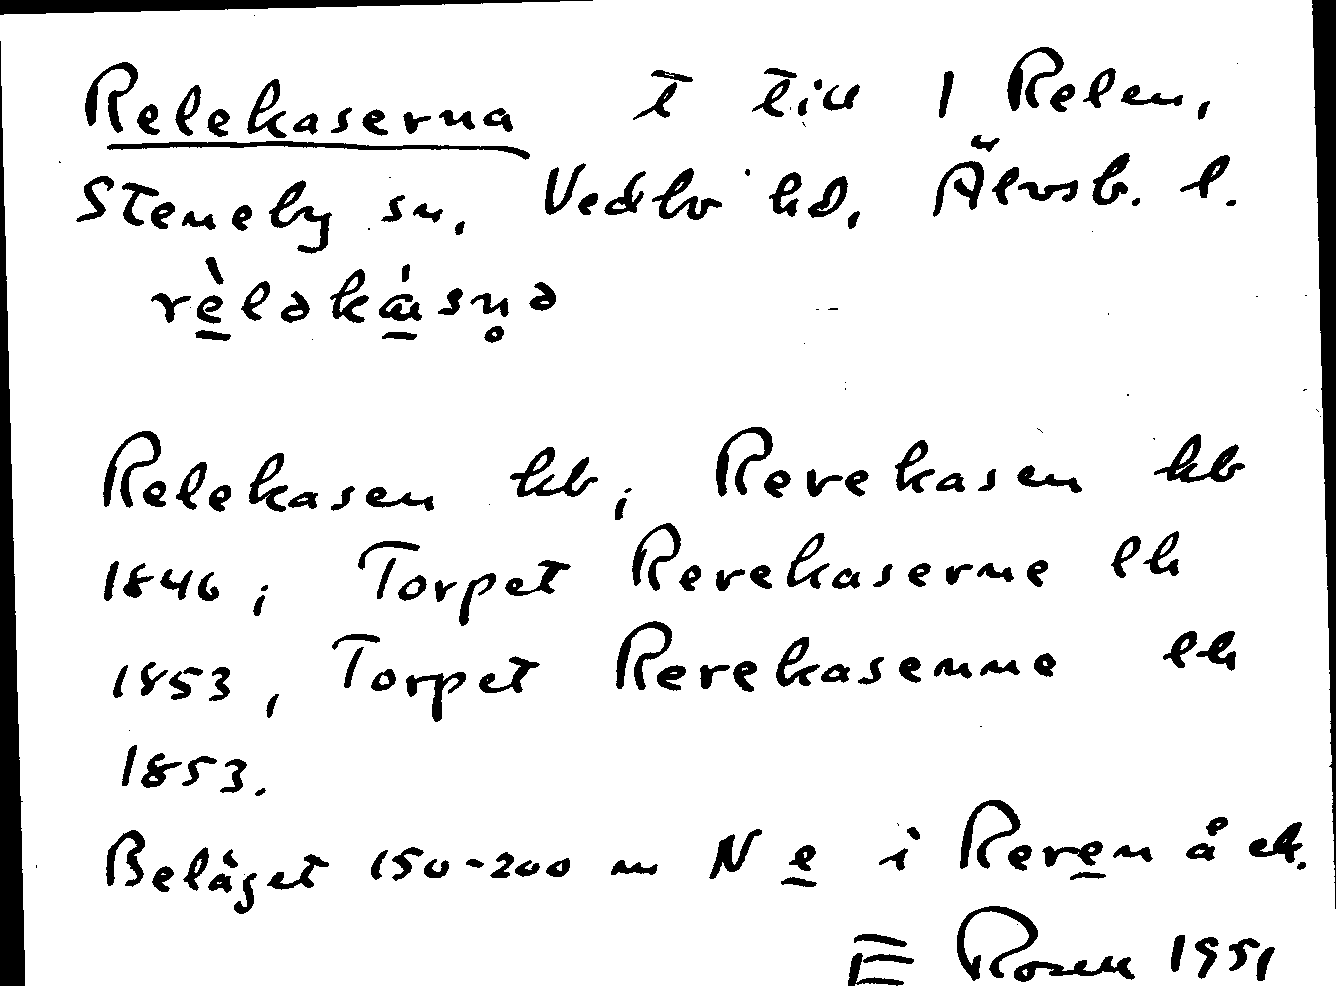 Relekaserna t till 1 Relen,
Steneby sn, Vedbo hd, Älvsb. l.
rèləkásn̥ə
Relekasen hb; Revekasen hb
1846; Torpet Revekaserne lh
1853, Torpet Rerekasenne lh
1853.
Beläget 150-200 m N e i Reren å ek.
E Rosell 1951